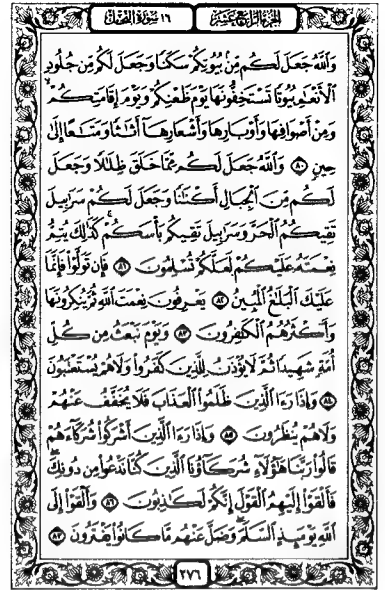 الجزء الرابع عشر ١٦ سورة النحل
وَاللَّهُ جَعَلَ لَكُم مِّنۢ بُيُوتِكُمْ سَكَنًا وَجَعَلَ لَكُم مِّن جُلُودِ
الْأَنْعَٰمِ بُيُوتًا تَسْتَخِفُّونَهَا يَوْمَ ظَعْنِكُمْ وَيَوْمَ إِقَامَتِكُمْ
وَمِنْ أَصْوَافِهَا وَأَوْبَارِهَا وَأَشْعَارِهَآ أَثَٰثًا وَمَتَٰعًا إِلَىٰ
حِينٍ ٨٠ وَاللَّهُ جَعَلَ لَكُم مِّمَّا خَلَقَ ظِلَٰلًا وَجَعَلَ
لَكُم مِّنَ الْجِبَالِ أَكْنَٰنًا وَجَعَلَ لَكُمْ سَرَٰبِيلَ
تَقِيكُمُ الْحَرَّ وَسَرَٰبِيلَ تَقِيكُم بَأْسَكُمْ ۚ كَذَٰلِكَ يُتِمُّ
نِعْمَتَهُۥ عَلَيْكُمْ لَعَلَّكُمْ تُسْلِمُونَ ٨١ فَإِن تَوَلَّوْا۟ فَإِنَّمَا
عَلَيْكَ الْبَلَٰغُ الْمُبِينُ ٨٢ يَعْرِفُونَ نِعْمَتَ اللَّهِ ثُمَّ يُنكِرُونَهَا
وَأَكْثَرُهُمُ الْكَٰفِرُونَ ٨٣ وَيَوْمَ نَبْعَثُ مِن كُلِّ
أُمَّةٍ شَهِيدًا ثُمَّ لَا يُؤْذَنُ لِلَّذِينَ كَفَرُوا۟ وَلَا هُمْ يُسْتَعْتَبُونَ
٨٤ وَإِذَا رَءَا الَّذِينَ ظَلَمُوا۟ الْعَذَابَ فَلَا يُخَفَّفُ عَنْهُمْ
وَلَا هُمْ يُنظَرُونَ ٨٥ وَإِذَا رَءَا الَّذِينَ أَشْرَكُوا۟ شُرَكَآءَهُمْ
قَالُوا۟ رَبَّنَا هَٰٓؤُلَآءِ شُرَكَآؤُنَا الَّذِينَ كُنَّا نَدْعُوا۟ مِن دُونِكَ ۖ
فَأَلْقَوْا۟ إِلَيْهِمُ الْقَوْلَ إِنَّكُمْ لَكَٰذِبُونَ ٨٦ وَأَلْقَوْا۟ إِلَى
اللَّهِ يَوْمَئِذٍ السَّلَمَ ۖ وَضَلَّ عَنْهُم مَّا كَانُوا۟ يَفْتَرُونَ ٨٧
٢٧٦